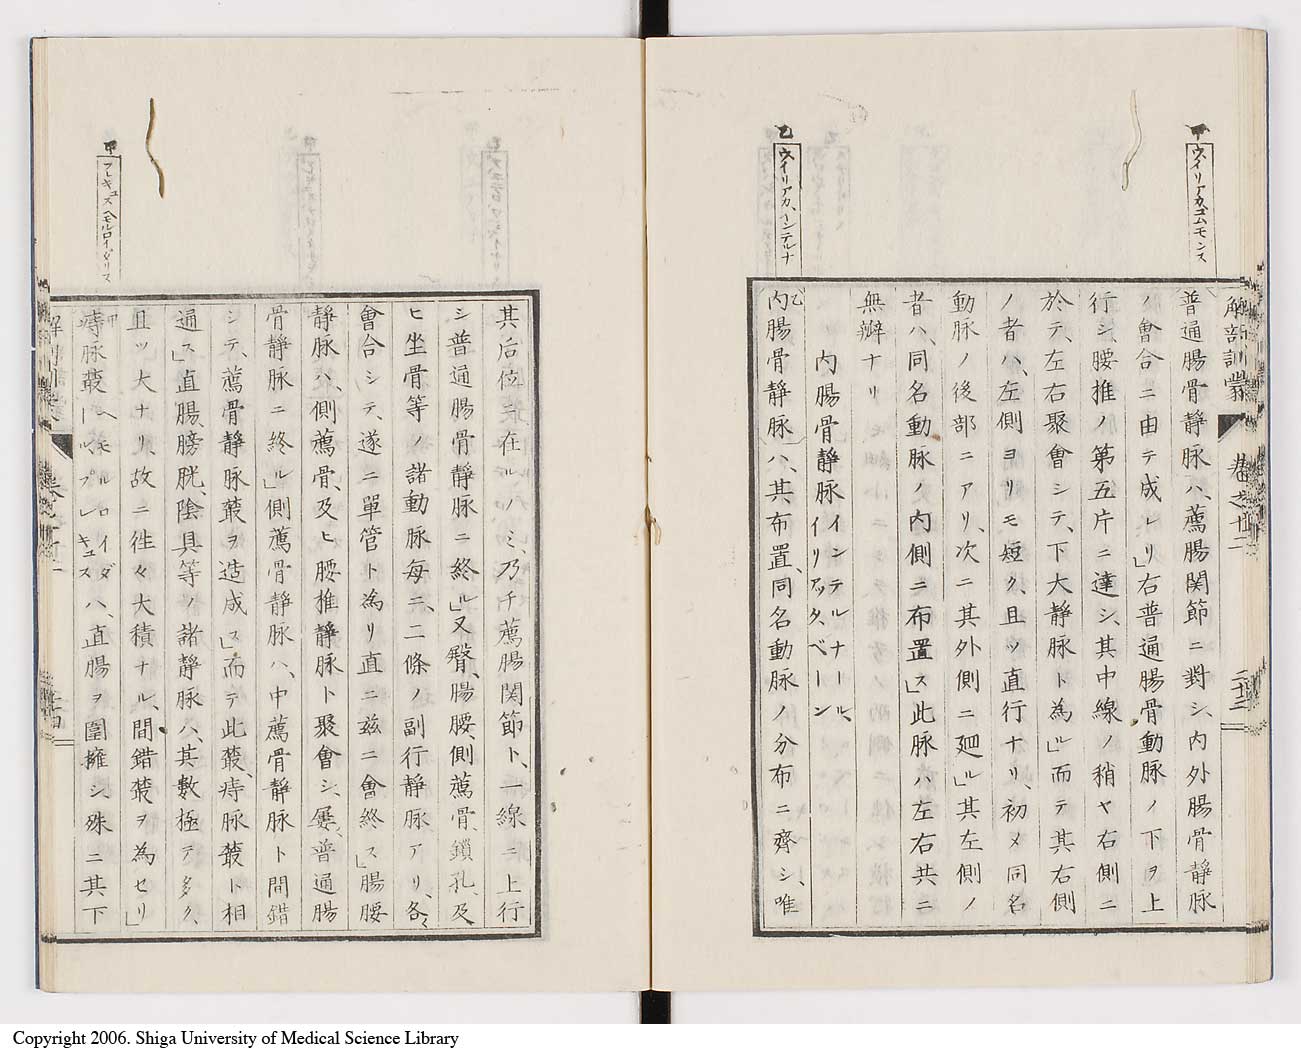 甲 ウ スイリアカ、コムモンス
解剖訓蒙 卷之廿二 二十三
普通腸骨静脉ハ、薦腸関節ニ對シ、内外腸骨静脉
ノ會合ニ由テ成レリ」右普通腸骨動脉ノ下ヲ上
行シ、腰推ノ第五片ニ達シ、其中線ノ稍ヤ右側ニ
於テ、左右聚會シテ、下大静脉ト為ル」而テ其右側
ノ者ハ、左側ヨリモ短ク、且ツ直行ナリ、初メ同名
動脉ノ後部ニアリ、次ニ其外側ニ廻ル」其左側ノ
者ハ、同名動脉ノ内側ニ布置ス」此脉ハ左右共ニ
無瓣ナリ
内腸骨静脉 インテルナール、イリアッタ、ベーン
乙 ウスイリアカ、インテルナ
内腸骨静脉ハ、其布置、同名動脉ノ分布ニ齊シ、唯
其后位在ルノミ、乃千薦腸関節ト、一線ニ上行
シ普通腸骨静脉ニ終ル」又臀、腸腰、側薦骨、鎖孔、及
ヒ坐骨等ノ諸動脉毎ニ、二條ノ副行静脉アリ、各々
會合シテ、遂ニ單管ト為リ直ニ茲ニ會終ス」腸腰
静脉ハ、側薦骨、及ヒ腰推静脉ト聚會シ、屡、普通腸
骨静脉ニ終ル」側薦骨静脉ハ、中薦骨静脉ト間錯
シテ、薦骨静脉叢ヲ造成ス」而テ此叢、痔脉叢ト相
通ス」直腸、膀胱、陰具等ノ諸静脉ハ、其數極テ多ク、
且ツ大ナリ、故ニ徃々大積ナル、間錯叢ヲ為セリ」
甲 プレキュス ヘモルロイダリス
痔脉叢 ヘモルロイダールプレキュス ハ、直腸ヲ圍擁シ、殊ニ其下